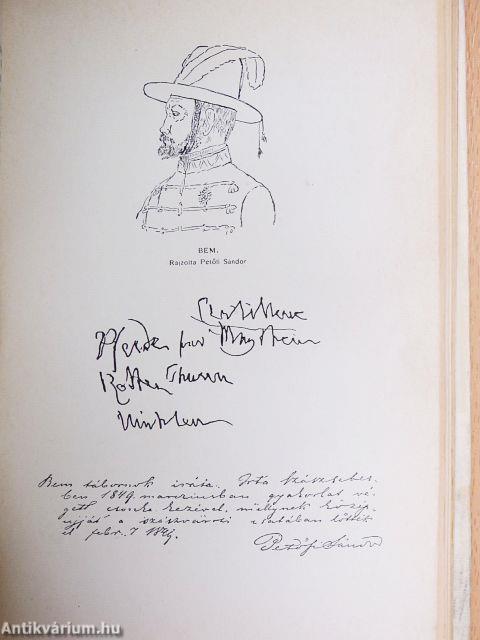 BEM.
Rajzolta Petőfi Sándor
Pferde
Rothen Thurm
Bem tábornok irása. Irta Szászsebes-
ben 1849 marcziusban gyakorlat vé-
gett csonka kezével, mellynek közép-
ujját a szászvárosi csatában lőtték
el febr. 7 1849.
Petőfi Sándor
Antikvárium.hu